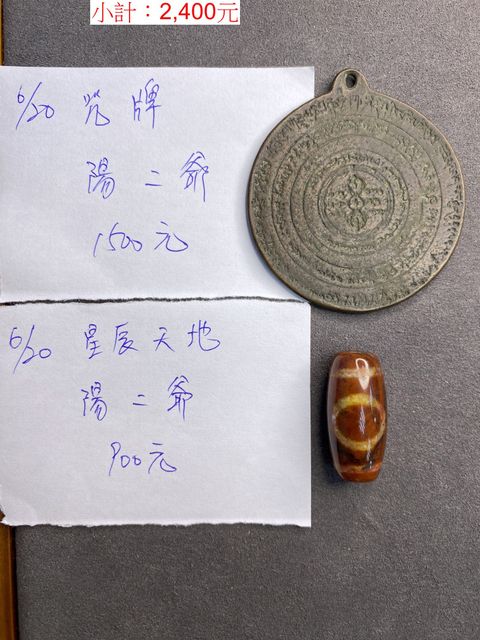 小計：2,400元
6/20 咒牌
陽二爺
1500元
6/20 星辰天地
陽二爺
900元